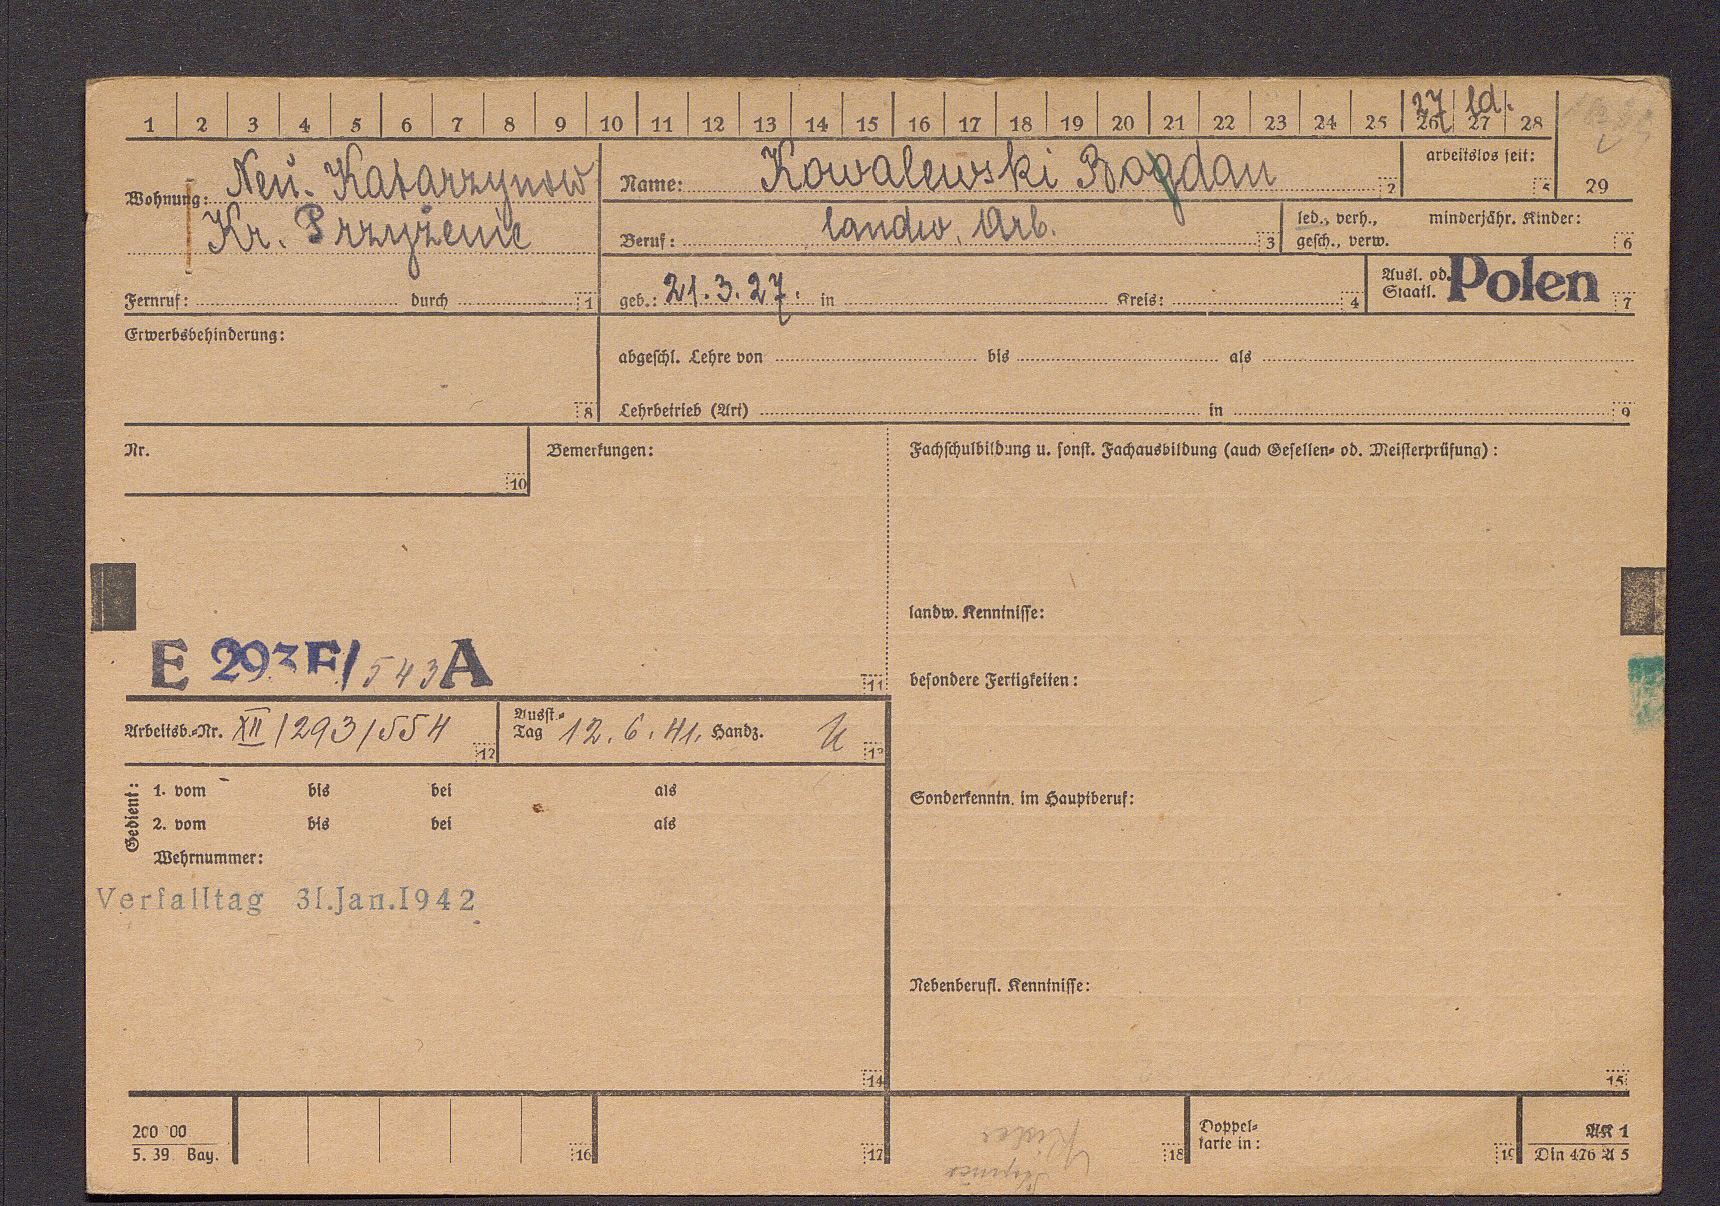 1 2 3 4 5 6 7 8 9 10 11 12 13 14 15 16 17 18 19 20 21 22 23 24 25 26 27 28
27 ld.
Wohnung: Neu-Katarzynow
Kr. Przyżenie
Fernruf: durch 1
Name: Kowalewski Bogdan 2
arbeitslos seit: 5
29
Beruf: landw. Arb. 3
led., verh., minderjähr. Kinder:
gesch., verw. 6
geb.: 21.3.27. in Kreis: 4
Ausl. od. Polen
Staatl. 7
Erwerbsbehinderung:
8
abgeschl. Lehre von bis als
Lehrbetrieb (Art) in 9
Nr.
10
Bemerkungen:
E 293 F/543 A
11
Fachschulbildung u. sonst. Fachausbildung (auch Gesellen- od. Meisterprüfung):
landw. Kenntnisse:
besondere Fertigkeiten:
Sonderkenntn. im Hauptberuf:
Nebenberufl. Kenntnisse:
15
Arbeitsb.-Nr. XII/293/554 12
Ausst.-
Tag 12.6.41. Handz. 13
Gedient:
1. vom bis bei als
2. vom bis bei als
Wehrnummer:
Verfalltag 31.Jan.1942
14
200 00
5. 39 Bay.
16
17
18
Doppel-
karte in: 19
AK 1
Din 476 A 5